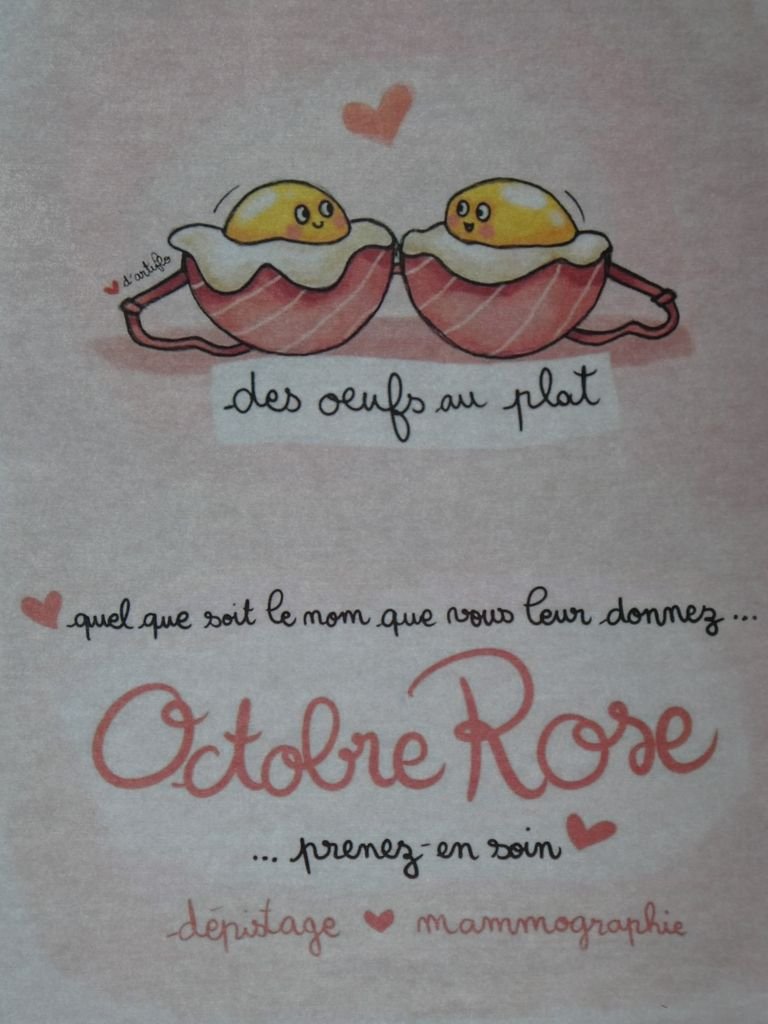 d'artiflo
des oeufs au plat
quel que soit le nom que vous leur donnez ...
Octobre Rose
... prenez-en soin
dépistage mammographie